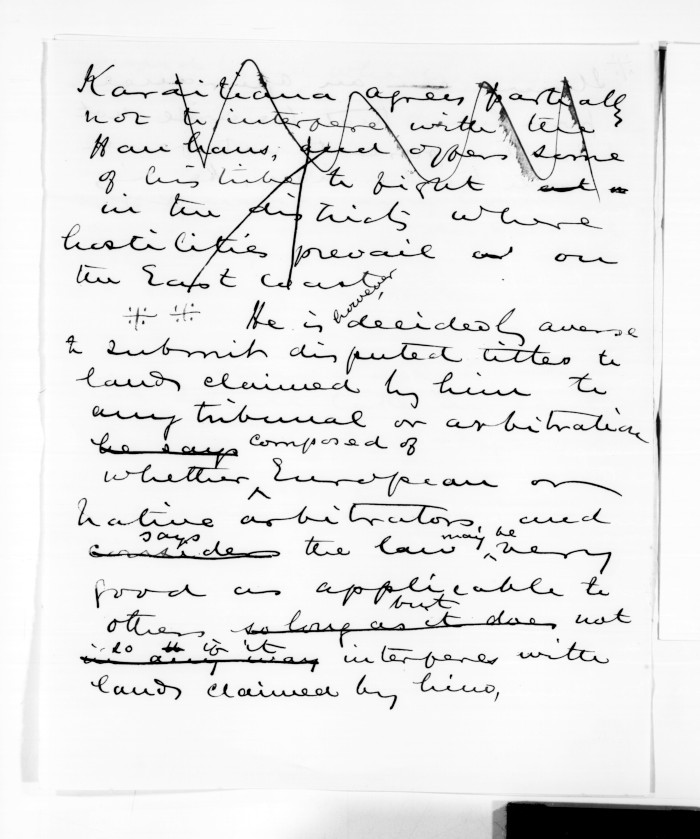 Karaitiana agrees partially
not to interfere with the
Hauhaus, and offers some
of his tribe to fight at
in the districts where
hostilities prevail or on
the East Coast
however
He is decidedly averse
to submit disputed titles to
lands claimed by him to
any tribunal or arbitration
he says composed of
whether European or
Native arbitrators, and
says
considers the law may be very
good as applicable to
but
others so long as it does not
so if it
in any way interferes with
lands claimed by him,